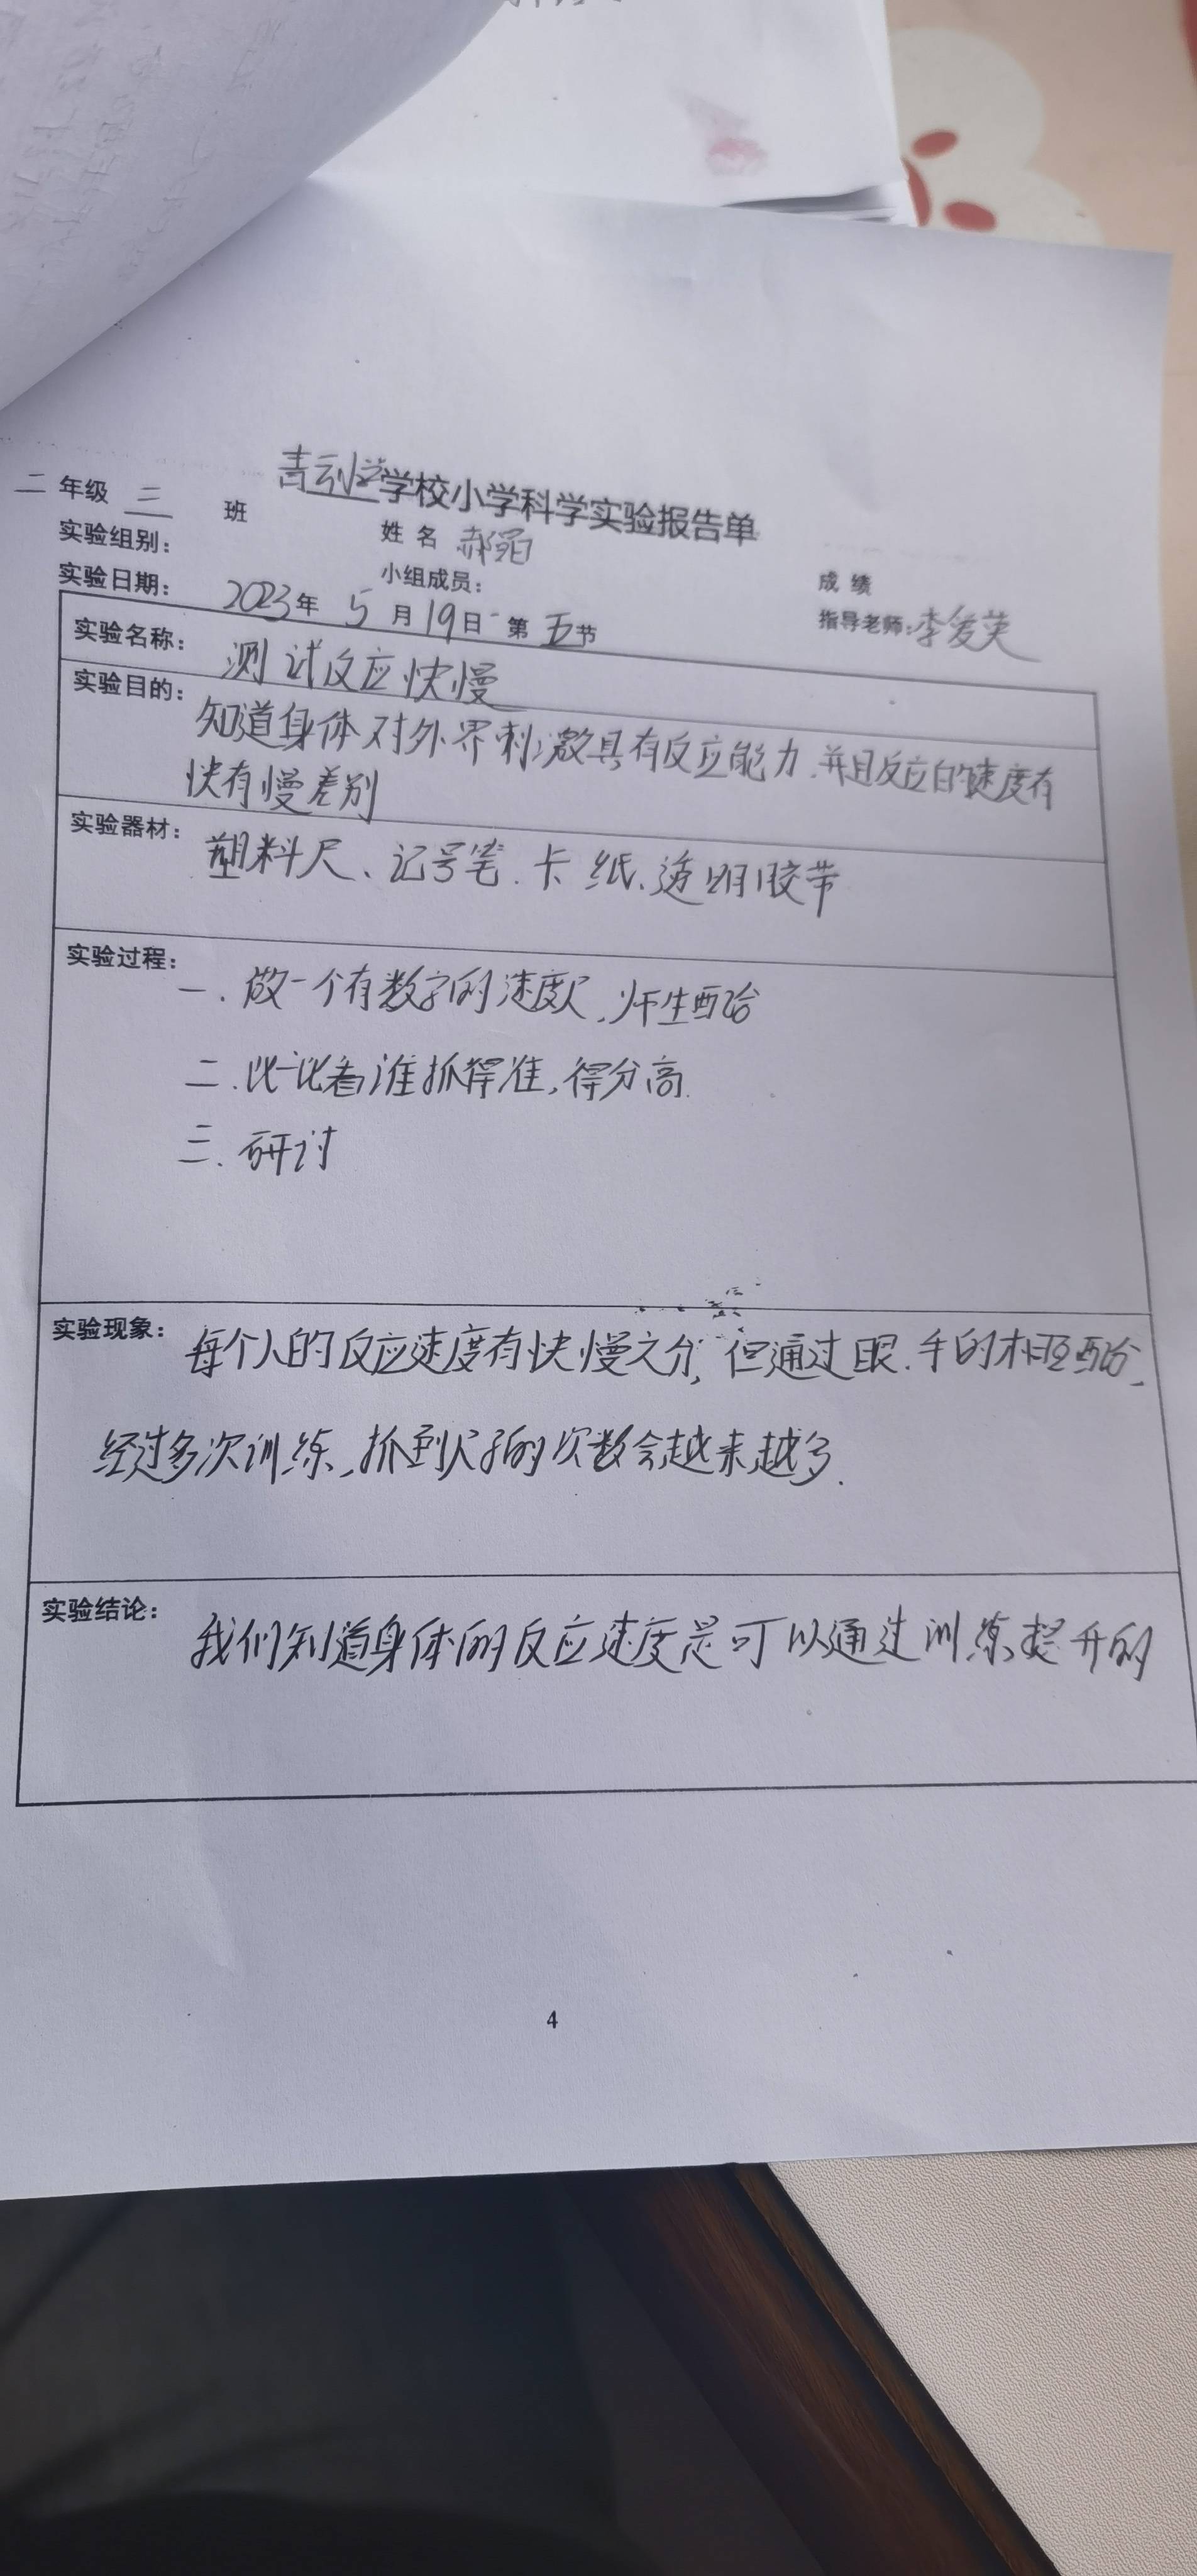 青云小学学校小学科学实验报告单
二年级 三 班 姓名 郝 成绩
实验组别： 小组成员： 指导老师：李爱英
实验日期： 2023年 5月19日 第五节
实验名称： 测试反应快慢
实验目的： 知道身体对外界刺激具有反应能力，并且反应的速度有
快有慢差别
实验器材： 塑料尺、记号笔、卡纸、透明胶带
实验过程： 一、做一个有数字的速度尺，师生配合
二、比一比看谁抓得准，得分高.
三、研讨
实验现象： 每个人的反应速度有快慢之分，但通过眼、手的相互配合，
经过多次训练，抓到尺子的次数会越来越多.
实验结论： 我们知道身体的反应速度是可以通过训练提升的
4